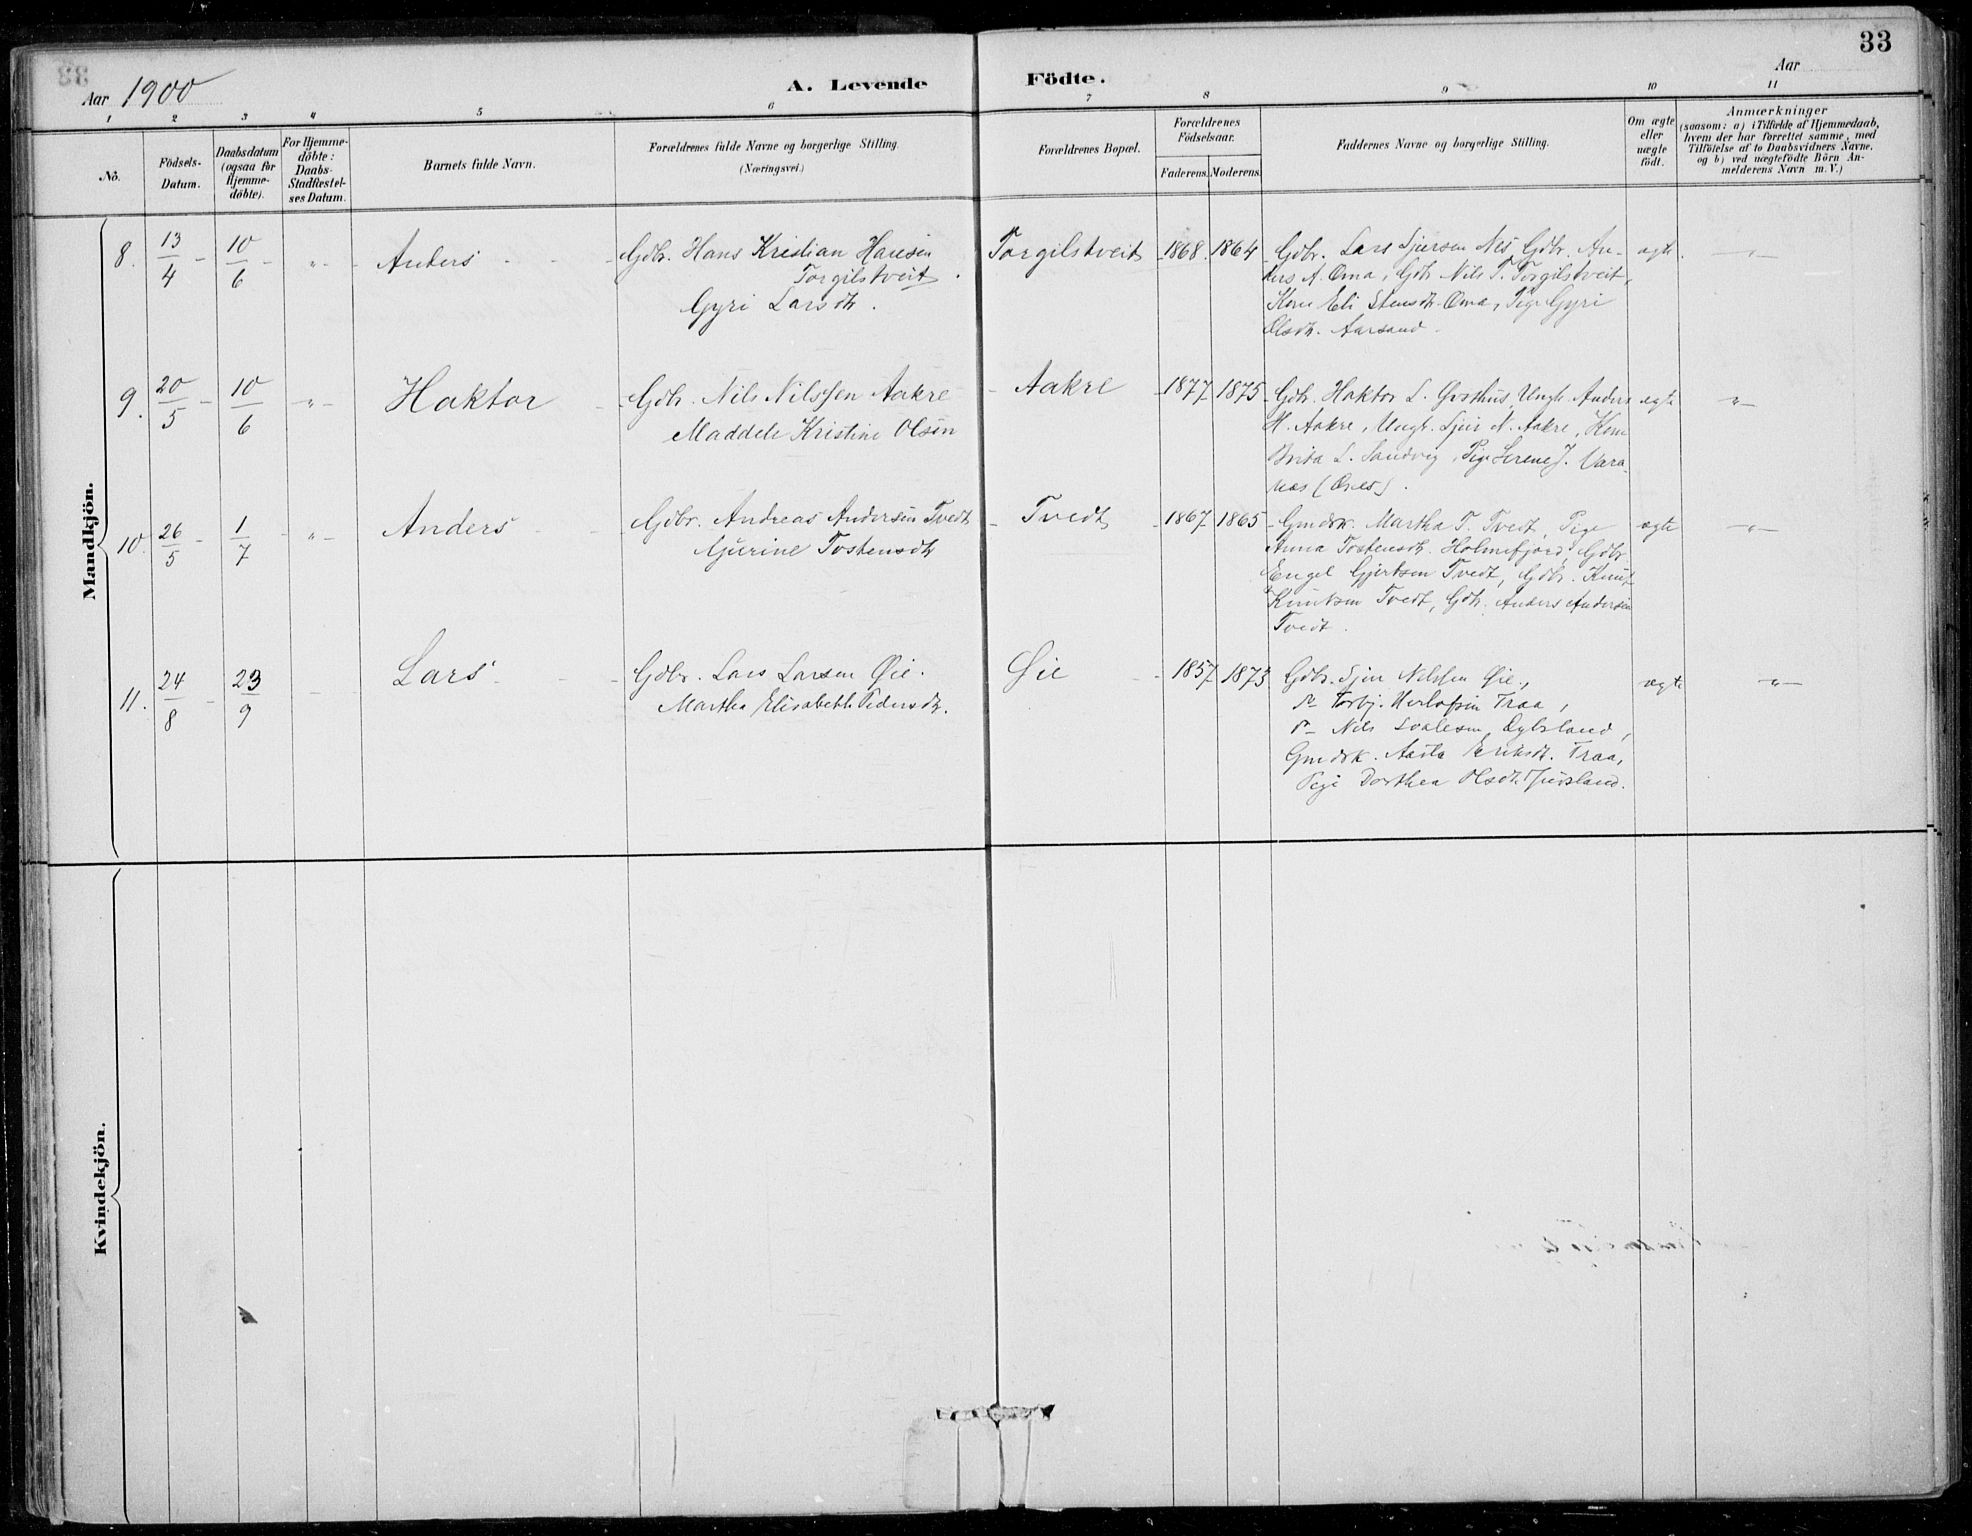 33
Aar 1900
A. Levende Födte.
Aar
1 2 3 4 5 6 7 8 9 10 11
No.
Födsels-Datum.
Daabsdatum (ogsaa för Hjemme-döbte).
For Hjemme-döbte: Daabs-Stadfæstel-ses Datum.
Barnets fulde Navn.
Forældrenes fulde Navne og borgerlige Stilling.
(Næringsvei.)
Forældrenes Bopæl.
Forældrenes Födselsaar.
Faderens. Moderens.
Faddernes Navne og borgerlige Stilling.
Om ægte eller uægte födt.
Anmærkninger
(saasom: a) i Tilfælde af Hjemmedaab, hvem der har forrettet samme, med Tilföielse af to Daabsvidners Navne, og b) ved uægtefödte Börn An-melderens Navn m. V.)
Mandkjön.
8. 13/4 - 10/6 - „ - Anders
Gdbr. Hans Kristian Hansen
Torgilstveit.
Gyri Larsdtr.
Torgilstveit 1868. 1864
Gdbr. Lars Sjursen Nes, Gdbr. An-
ders A. Oma, Gdbr Nils T. Torgilstveit,
Kone Eli Stensdtr. Oma, Pige Gyri
Olsdtr. Aarsand.
ægte. „
9. 20/5 - 10/6 - „ - Haktor
Gdbr. Nils Nilssen Aakre
Maddele Kristine Olsen
Aakre 1877 1875
Gdbr. Haktor L. Gvothus, Ungk. Anders
H. Aakre, Ungk. Sjur N. Aakre, Kone
Brita L. Sandvig, Pige Serene J. Vara-
næs
ægte „
10. 26/5 - 1/7 - „ - Anders
Gdbr. Andreas Andersen Tvedt
Gjurine Tostensdtr
Tvedt 1867 1865
Gmdsk. Martha T. Tvedt, Pige
Anna Tostensdtr. Holmefjord, Gdbr.
Engel Gjertsen Tvedt, Gdbr. Knut
Knutsen Tvedt, Gdbr. Anders Andersen
Tvedt.
ægte „
11. 24/8 - 23/9 - Lars
Gdbr. Lars Larsen Øie.
Martha Elisabeth Pedersdtr.
Øie 1857 1873
Gdbr. Sjur Nilssen Øie,
Torbj. Herlofsen Traa,
Nils
Gmdsk. Aasta Eriksdt. Traa,
Pige Dorthea Olsdtr.
ægte „
Kvindekjön.